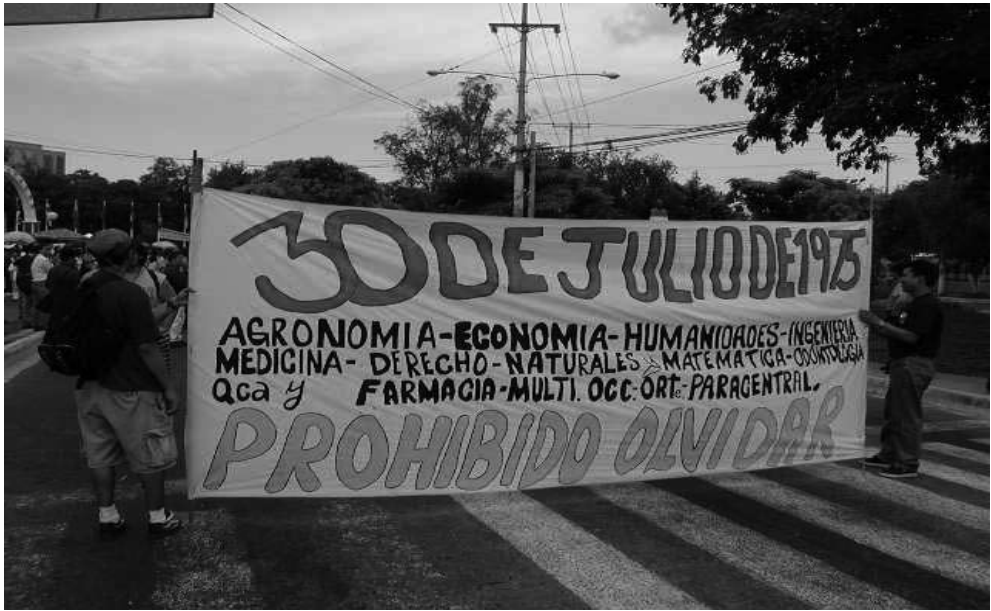 30 DE JULIO DE 1975
AGRONOMIA-ECONOMIA-HUMANIDADES-INGENIERIA
MEDICINA-DERECHO-NATURALES y MATEMATICA-ODONTOLOGIA
Qca y FARMACIA-MULTI. OCC-ORTe-PARACENTRAL.
PROHIBIDO OLVIDAR